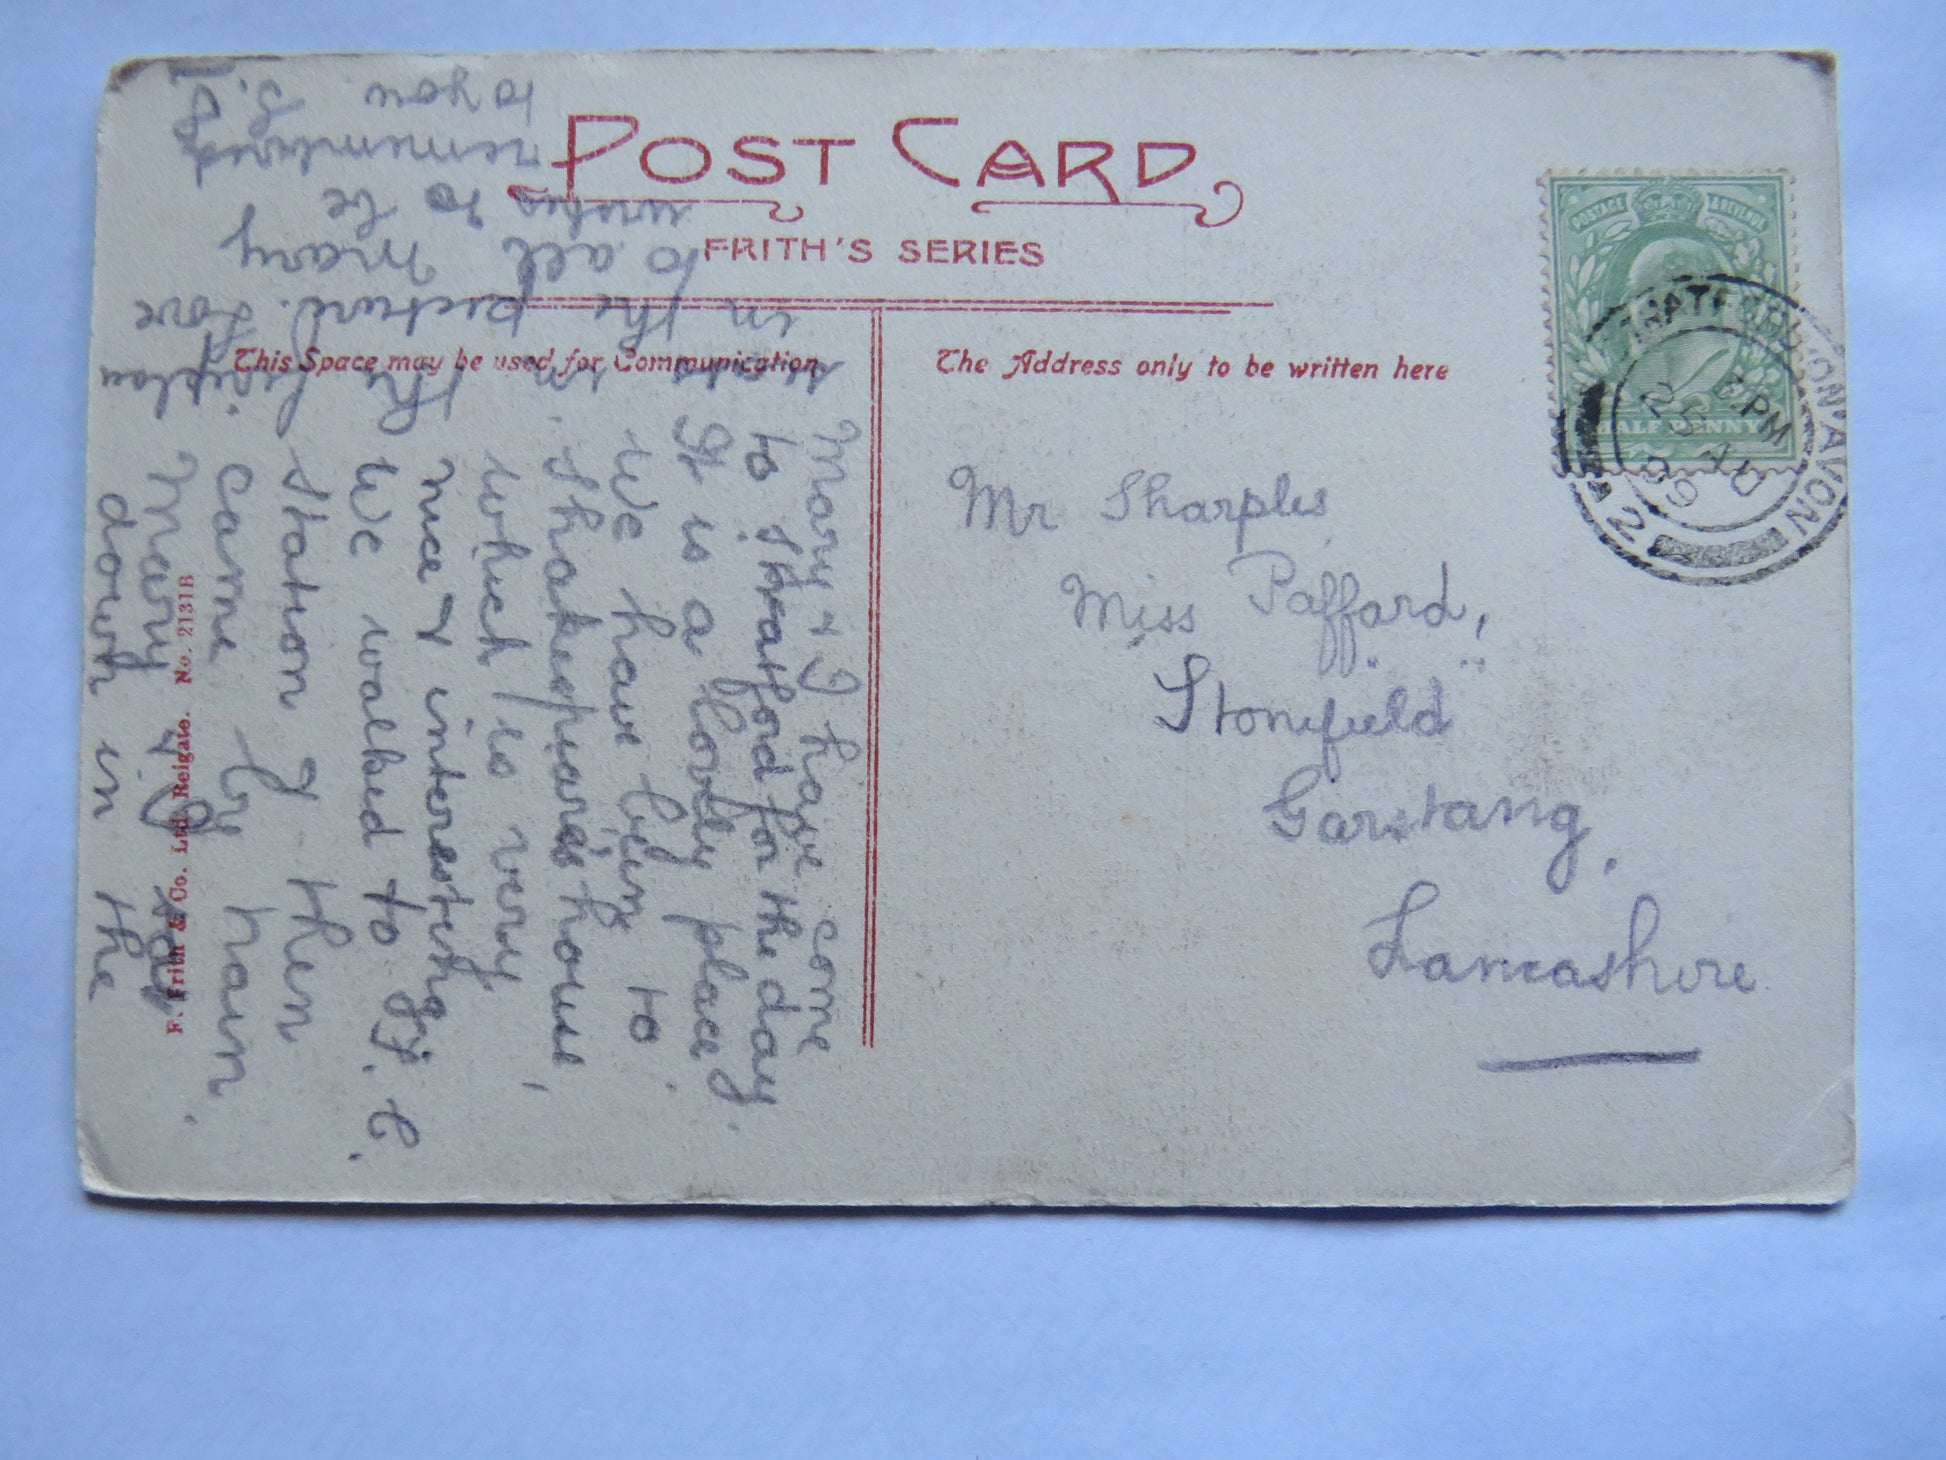 POST CARD
FRITH'S SERIES
This Space may be used for Communication
The Address only to be written here
POSTAGE & REVENUE
HALF PENNY
STRATFORD-ON-AVON
6. PM
25 AU
09
2
Mr Sharples
Miss Pafford,
"Stonefield"
Garstang,
Lancashire
Mary & I have come
to Stratford for the day
It is a lovely place.
We have been to
Shakespeare's house,
which is very
nice & interesting
We walked to S. C.
Station & then
came by train.
Mary & I
down in the
fireplace
in the
in the picture. Love
to all Mary
wishes to be
remembered
to you. S. P.
F. Frith & Co. Ltd. Reigate. No. 2131B